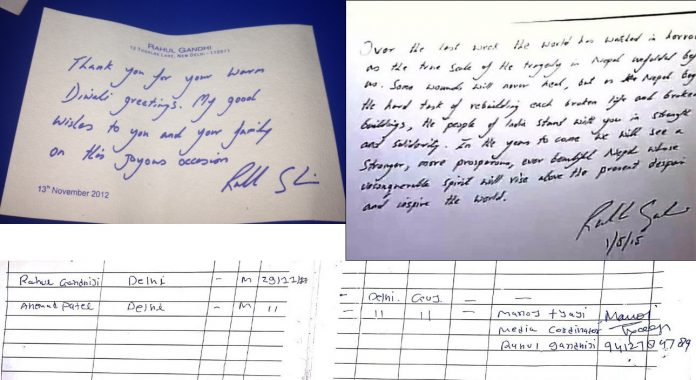 RAHUL GANDHI
12 TUGHLAK LANE, NEW DELHI - 110011
Thank you for your warm
Diwali greetings. My good
wishes to you and your family
on this joyous occasion
13th November 2012
Over the last week the world has watched in horror
as the true scale of the tragedy in Nepal unfolded before
us. Some wounds will never heal, but as Nepal
the hard task of rebuilding each broken life and broken
buildings, the people of India stand with you in strength
and solidarity. In the years to come we will see a
stronger, more prosperous, ever beautiful Nepal whose
unconquerable spirit will rise above the present despair
and inspire the world.
1/5/15
Rahul Gandhiji Delhi - M 29/11/
Ahemad Patel Delhi - M 11
- Delhi. - -
- 11 11 - Manoj tyagi Manoj
Media Cordinator
Rahul Gandhiji